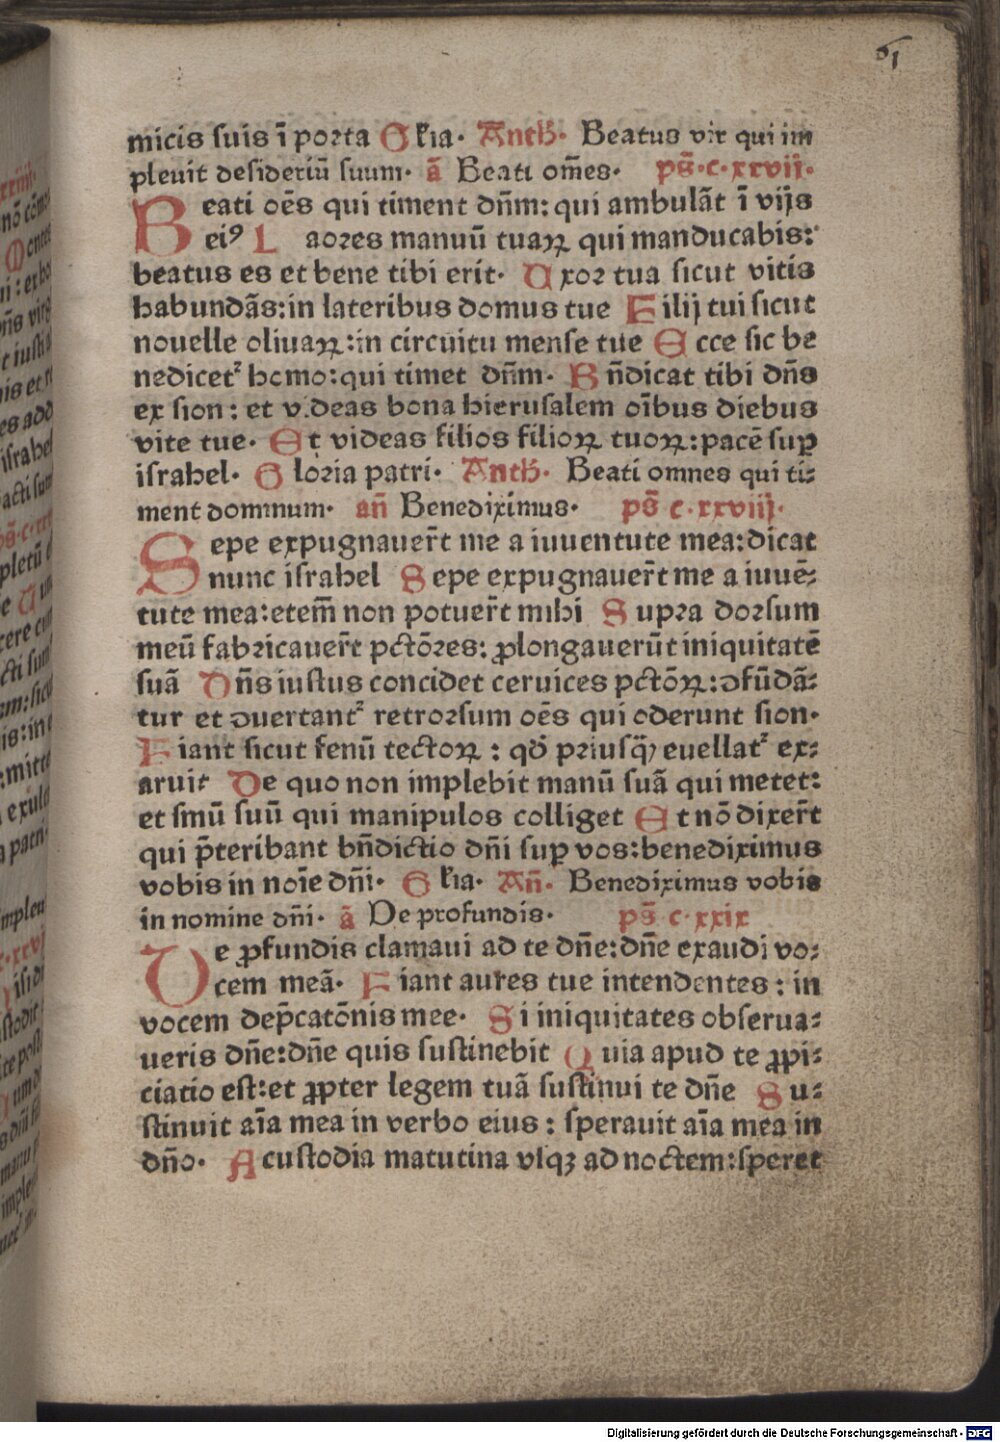 61
micis suis ī porta Gl'ia. Anth. Beatus vir qui im
pleuit desideriū suum. ā Beati om̄es. ps̄.c.xxvij.
Beati oēs qui timent dn̄m: qui ambulāt ī vijs
eiꝰ Laores manuū tuaꝝ qui manducabis:
beatus es et bene tibi erit. Uxor tua sicut vitis
habundās: in lateribus domus tue Filij tui sicut
nouelle oliuaꝝ: in circuitu mense tue Ecce sic be
nedicet᷑ homo: qui timet dn̄m. Bn̄dicat tibi dn̄s
ex sion: et videas bona hierusalem oībus diebus
vite tue. Et videas filios filioꝝ tuoꝝ: pacē suꝑ
israhel. Gloria patri. Anth. Beati omnes qui ti-
ment dominum. an̄ Benediximus. ps̄ c.xxviij.
Sepe expugnauer̄t me a iuuentute mea: dicat
nunc israhel Sepe expugnauer̄t me a iuuē-
tute mea: etem̄ non potuer̄t mihi Supra dorsum
meū fabricauer̄t pctōres: ꝓlongauerūt iniquitatē
suā Dn̄s iustus concidet ceruices pctōꝝ: ↄfūdā-
tur et ↄuertant᷑ retrorsum oēs qui oderunt sion.
Fiant sicut fenū tectoꝝ: qd̄ priusꝙ̄ euellat᷑ ex-
aruit De quo non implebit manū suā qui metet:
et smū suū qui manipulos colliget Et nō dixer̄t
qui p̄teribant bn̄dictio dn̄i suꝑ vos: benediximus
vobis in noīe dn̄i. Gl'ia. An̄. Benediximus vobis
in nomine dn̄i. ā De profundis. ps̄ c.xxix
De ꝓfundis clamaui ad te dn̄e: dn̄e exaudi vo-
cem meā. Fiant aures tue intendentes: in
vocem dep̄catōnis mee. Si iniquitates obserua-
ueris dn̄e: dn̄e quis sustinebit Quia apud te ꝓpi-
ciatio est: et ꝓpter legem tuā sustinui te dn̄e Su-
stinuit aīa mea in verbo eius: sperauit aīa mea in
dn̄o. A custodia matutina vsqꝫ ad noctem: speret
Digitalisierung gefördert durch die Deutsche Forschungsgemeinschaft - DFG